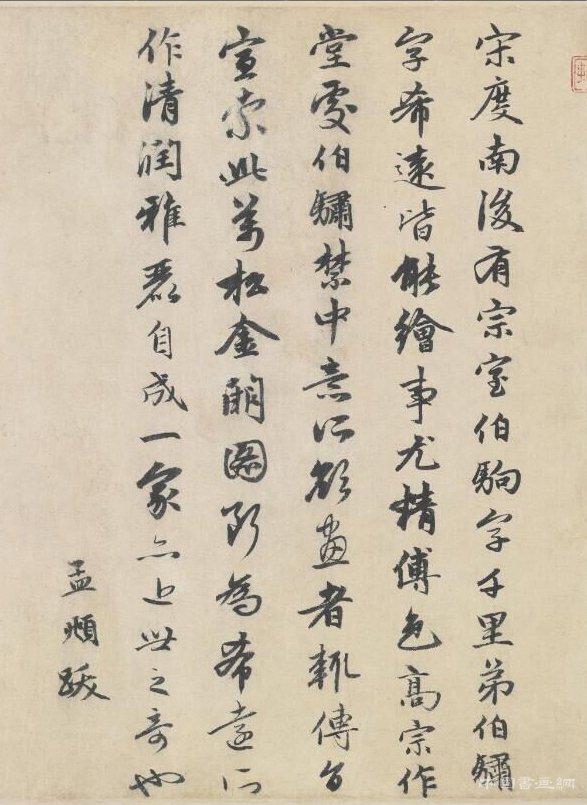 宋度南後有宗室伯駒字千里弟伯驌
字希遠皆能繪事尤精傅色高宗作
堂處伯驌禁中意所欲畫者輒傳旨
宣索此萬松金闕圖斷為希遠所
作清潤雅麗自成一家亦近世之奇也
孟頫跋
中国書画網